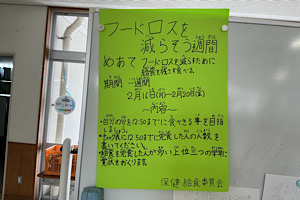 フードロスを
減らそう週間
めあて フードロスを減らすために
給食を残さず食べる。
期間 一週間
2月16日(月)〜2月20日(金)
〜内容〜
・自分の分を12:50までに食べきる事を目指
しましょう。
12:50までに完食した人の人数を
書いてください。
・給食を完食した人が多い上位三つの学級に
賞状をおくります。
保健給食委員会